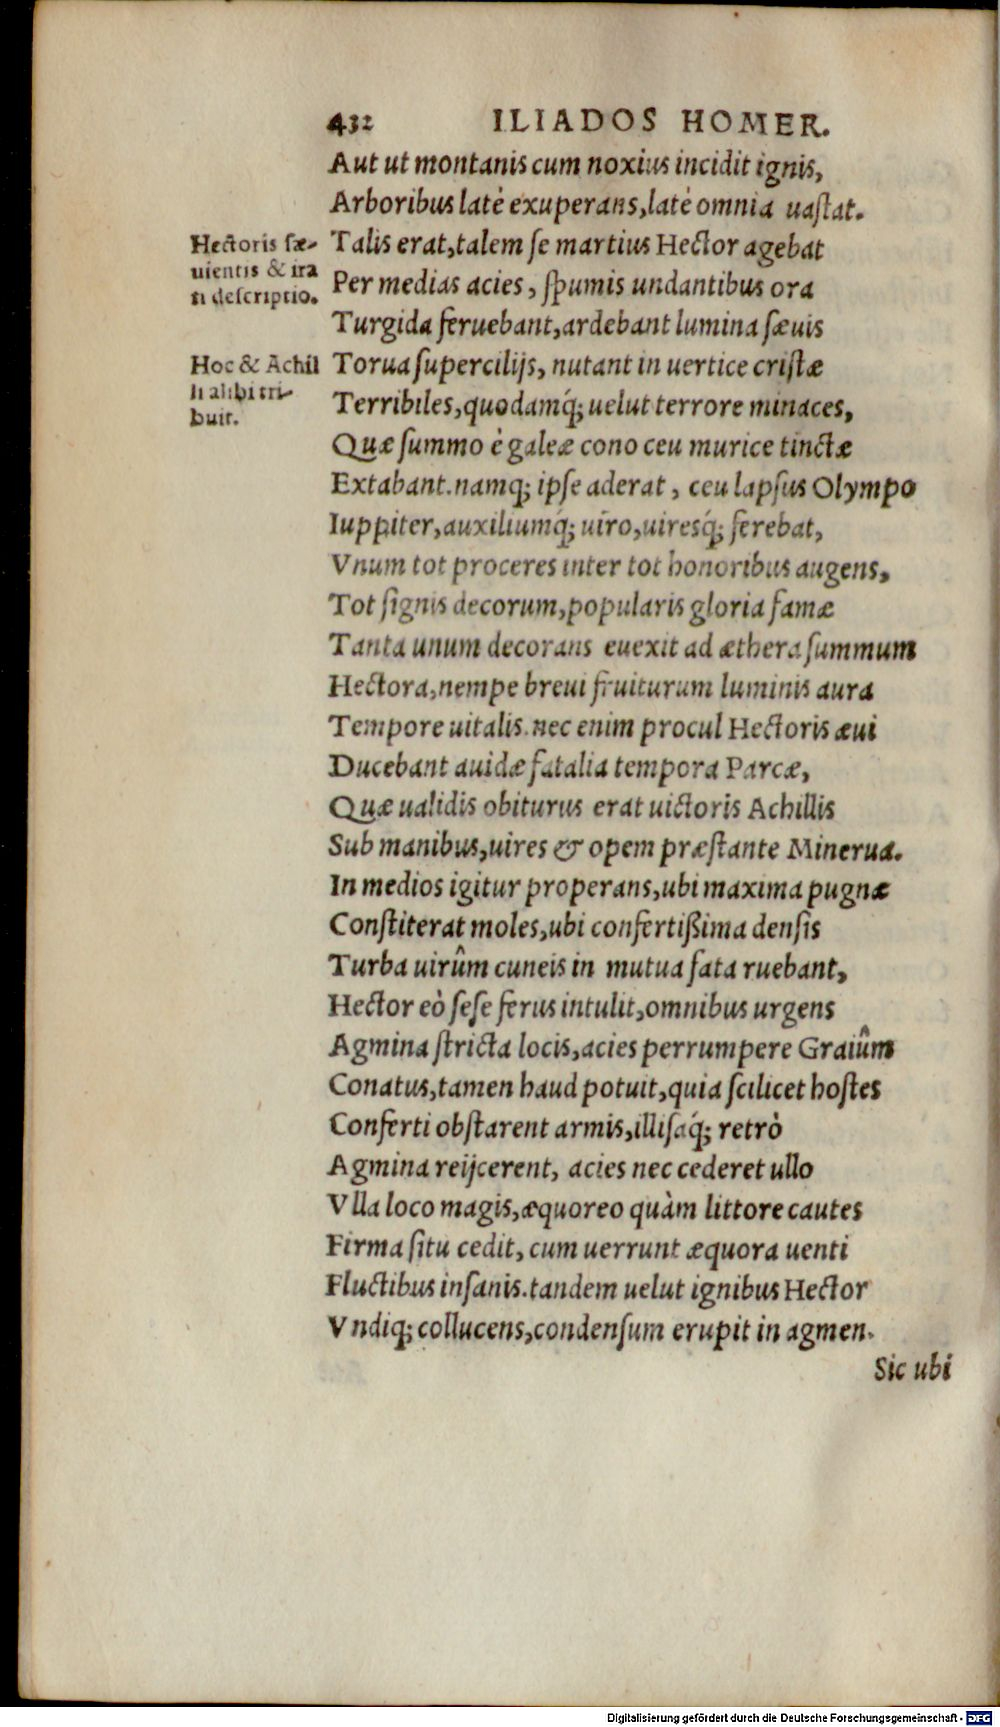 432 ILIADOS HOMER.
Aut ut montanis cum noxius incidit ignis,
Arboribus latè exuperans,latè omnia uaſtat.
Hectoris ſæ-
uientis & ira
ti deſcriptio.
Talis erat,talem ſe martius Hector agebat
Per medias acies, ſpumis undantibus ora
Turgida feruebant,ardebant lumina ſæuis
Hoc & Achil
li alibi tri-
buit.
Torua ſupercilijs, nutant in uertice criſtæ
Terribiles,quodamq́; uelut terrore minaces,
Quæ ſummo è galeæ cono ceu murice tinctæ
Extabant.namq; ipſe aderat, ceu lapſus Olympo
Iuppiter,auxiliumq́; uiro,uiresq́; ferebat,
Vnum tot proceres inter tot honoribus augens,
Tot ſignis decorum,popularis gloria famæ
Tanta unum decorans euexit ad æthera ſummum
Hectora,nempe breui fruiturum luminis aura
Tempore uitalis.nec enim procul Hectoris æui
Ducebant auidæ fatalia tempora Parcæ,
Quæ ualidis obiturus erat uictoris Achillis
Sub manibus,uires & opem præſtante Minerua.
In medios igitur properans,ubi maxima pugnæ
Conſtiterat moles,ubi confertißima denſis
Turba uirûm cuneis in mutua fata ruebant,
Hector eò ſeſe ferus intulit,omnibus urgens
Agmina ſtricta locis,acies perrumpere Graiûm
Conatus,tamen haud potuit,quia ſcilicet hoſtes
Conferti obſtarent armis,illiſaq́; retrò
Agmina reijcerent, acies nec cederet ullo
Vlla loco magis,æquoreo quàm littore cautes
Firma ſitu cedit, cum uerrunt æquora uenti
Fluctibus inſanis.tandem uelut ignibus Hector
Vndiq; collucens,condenſum erupit in agmen.
Sic ubi
Digitalisierung gefördert durch die Deutsche Forschungsgemeinschaft - DFG